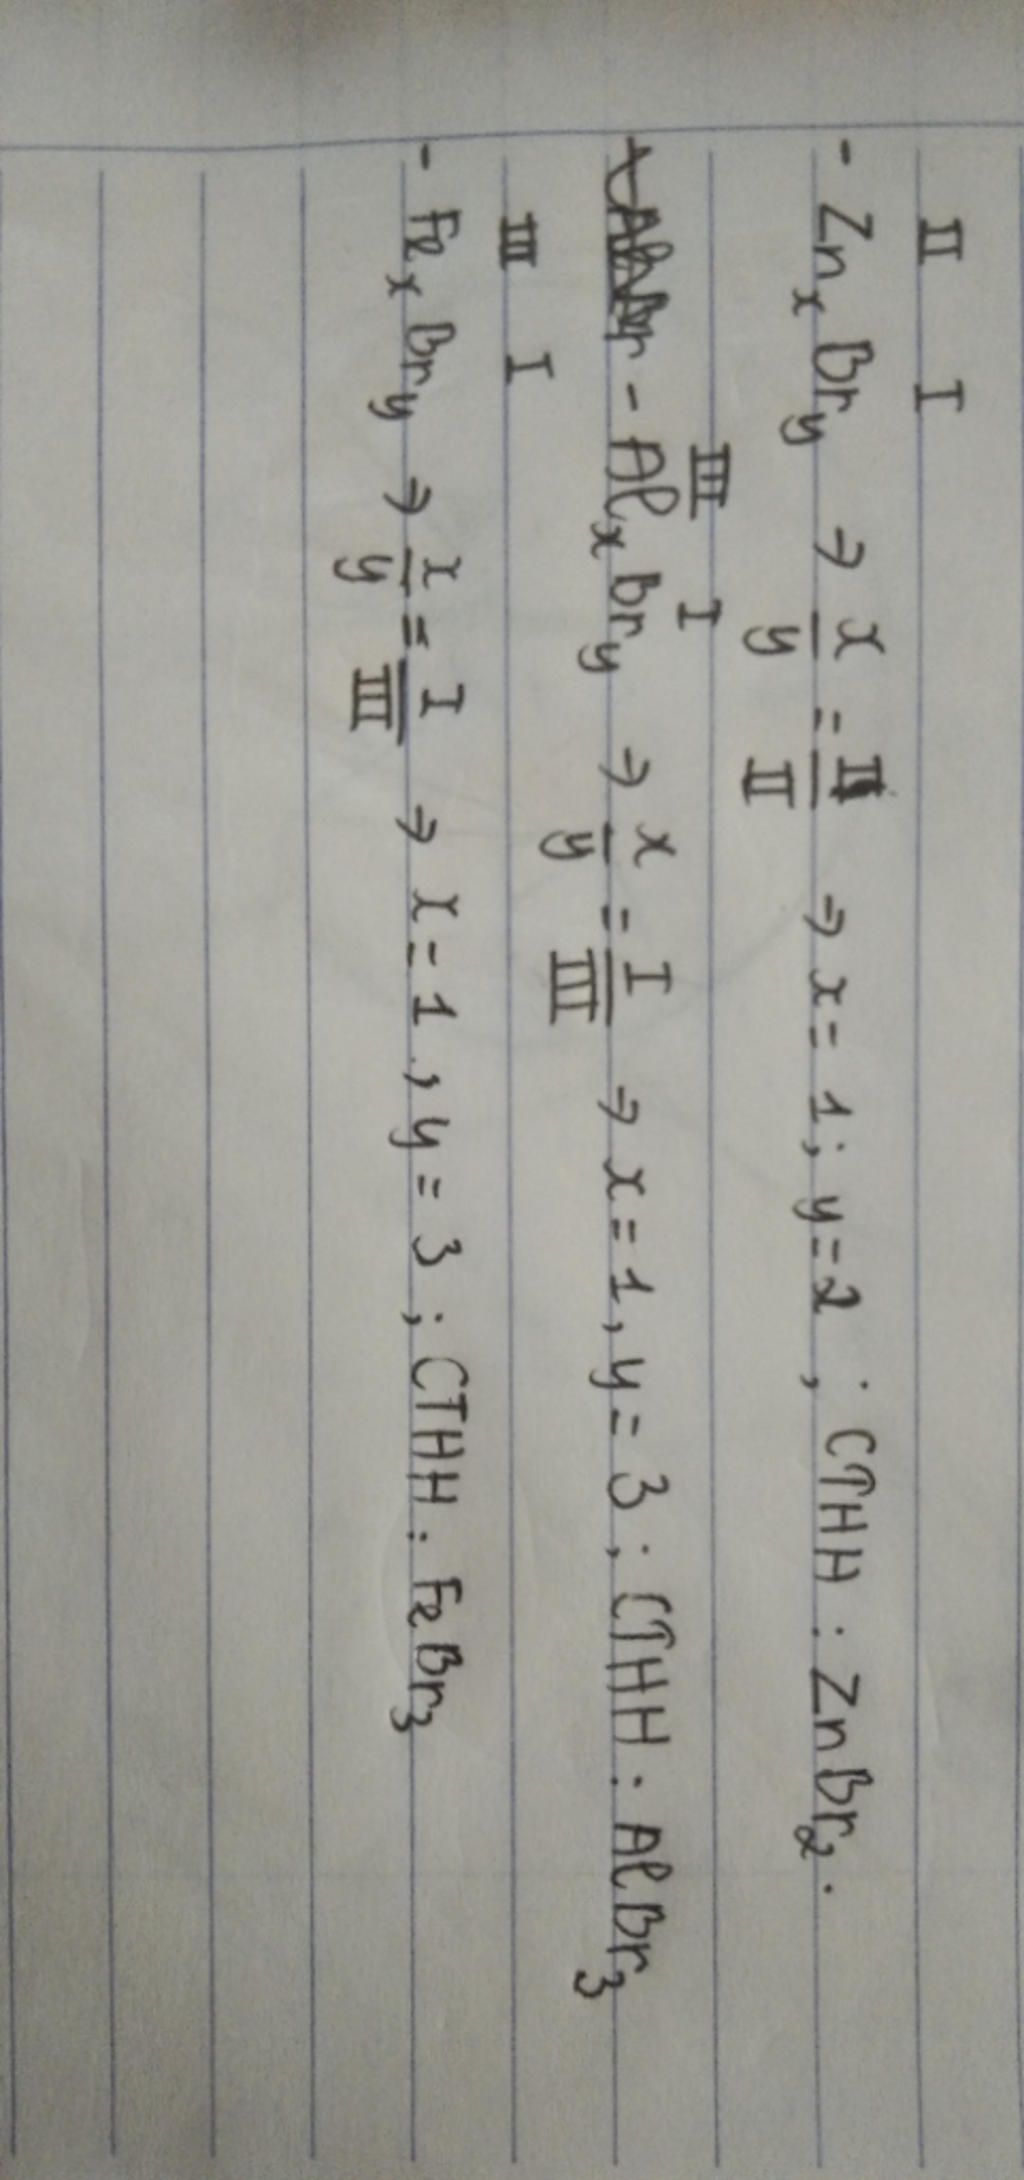 II I
- ZnxBry ⇒ x/y = I/II ⇒ x = 1; y = 2 ; CTHH : ZnBr2.
III I
- AlxBry ⇒ x/y = I/III ⇒ x = 1, y = 3 ; CTHH : AlBr3
III I
- FexBry ⇒ x/y = I/III ⇒ x = 1, y = 3 ; CTHH : FeBr3